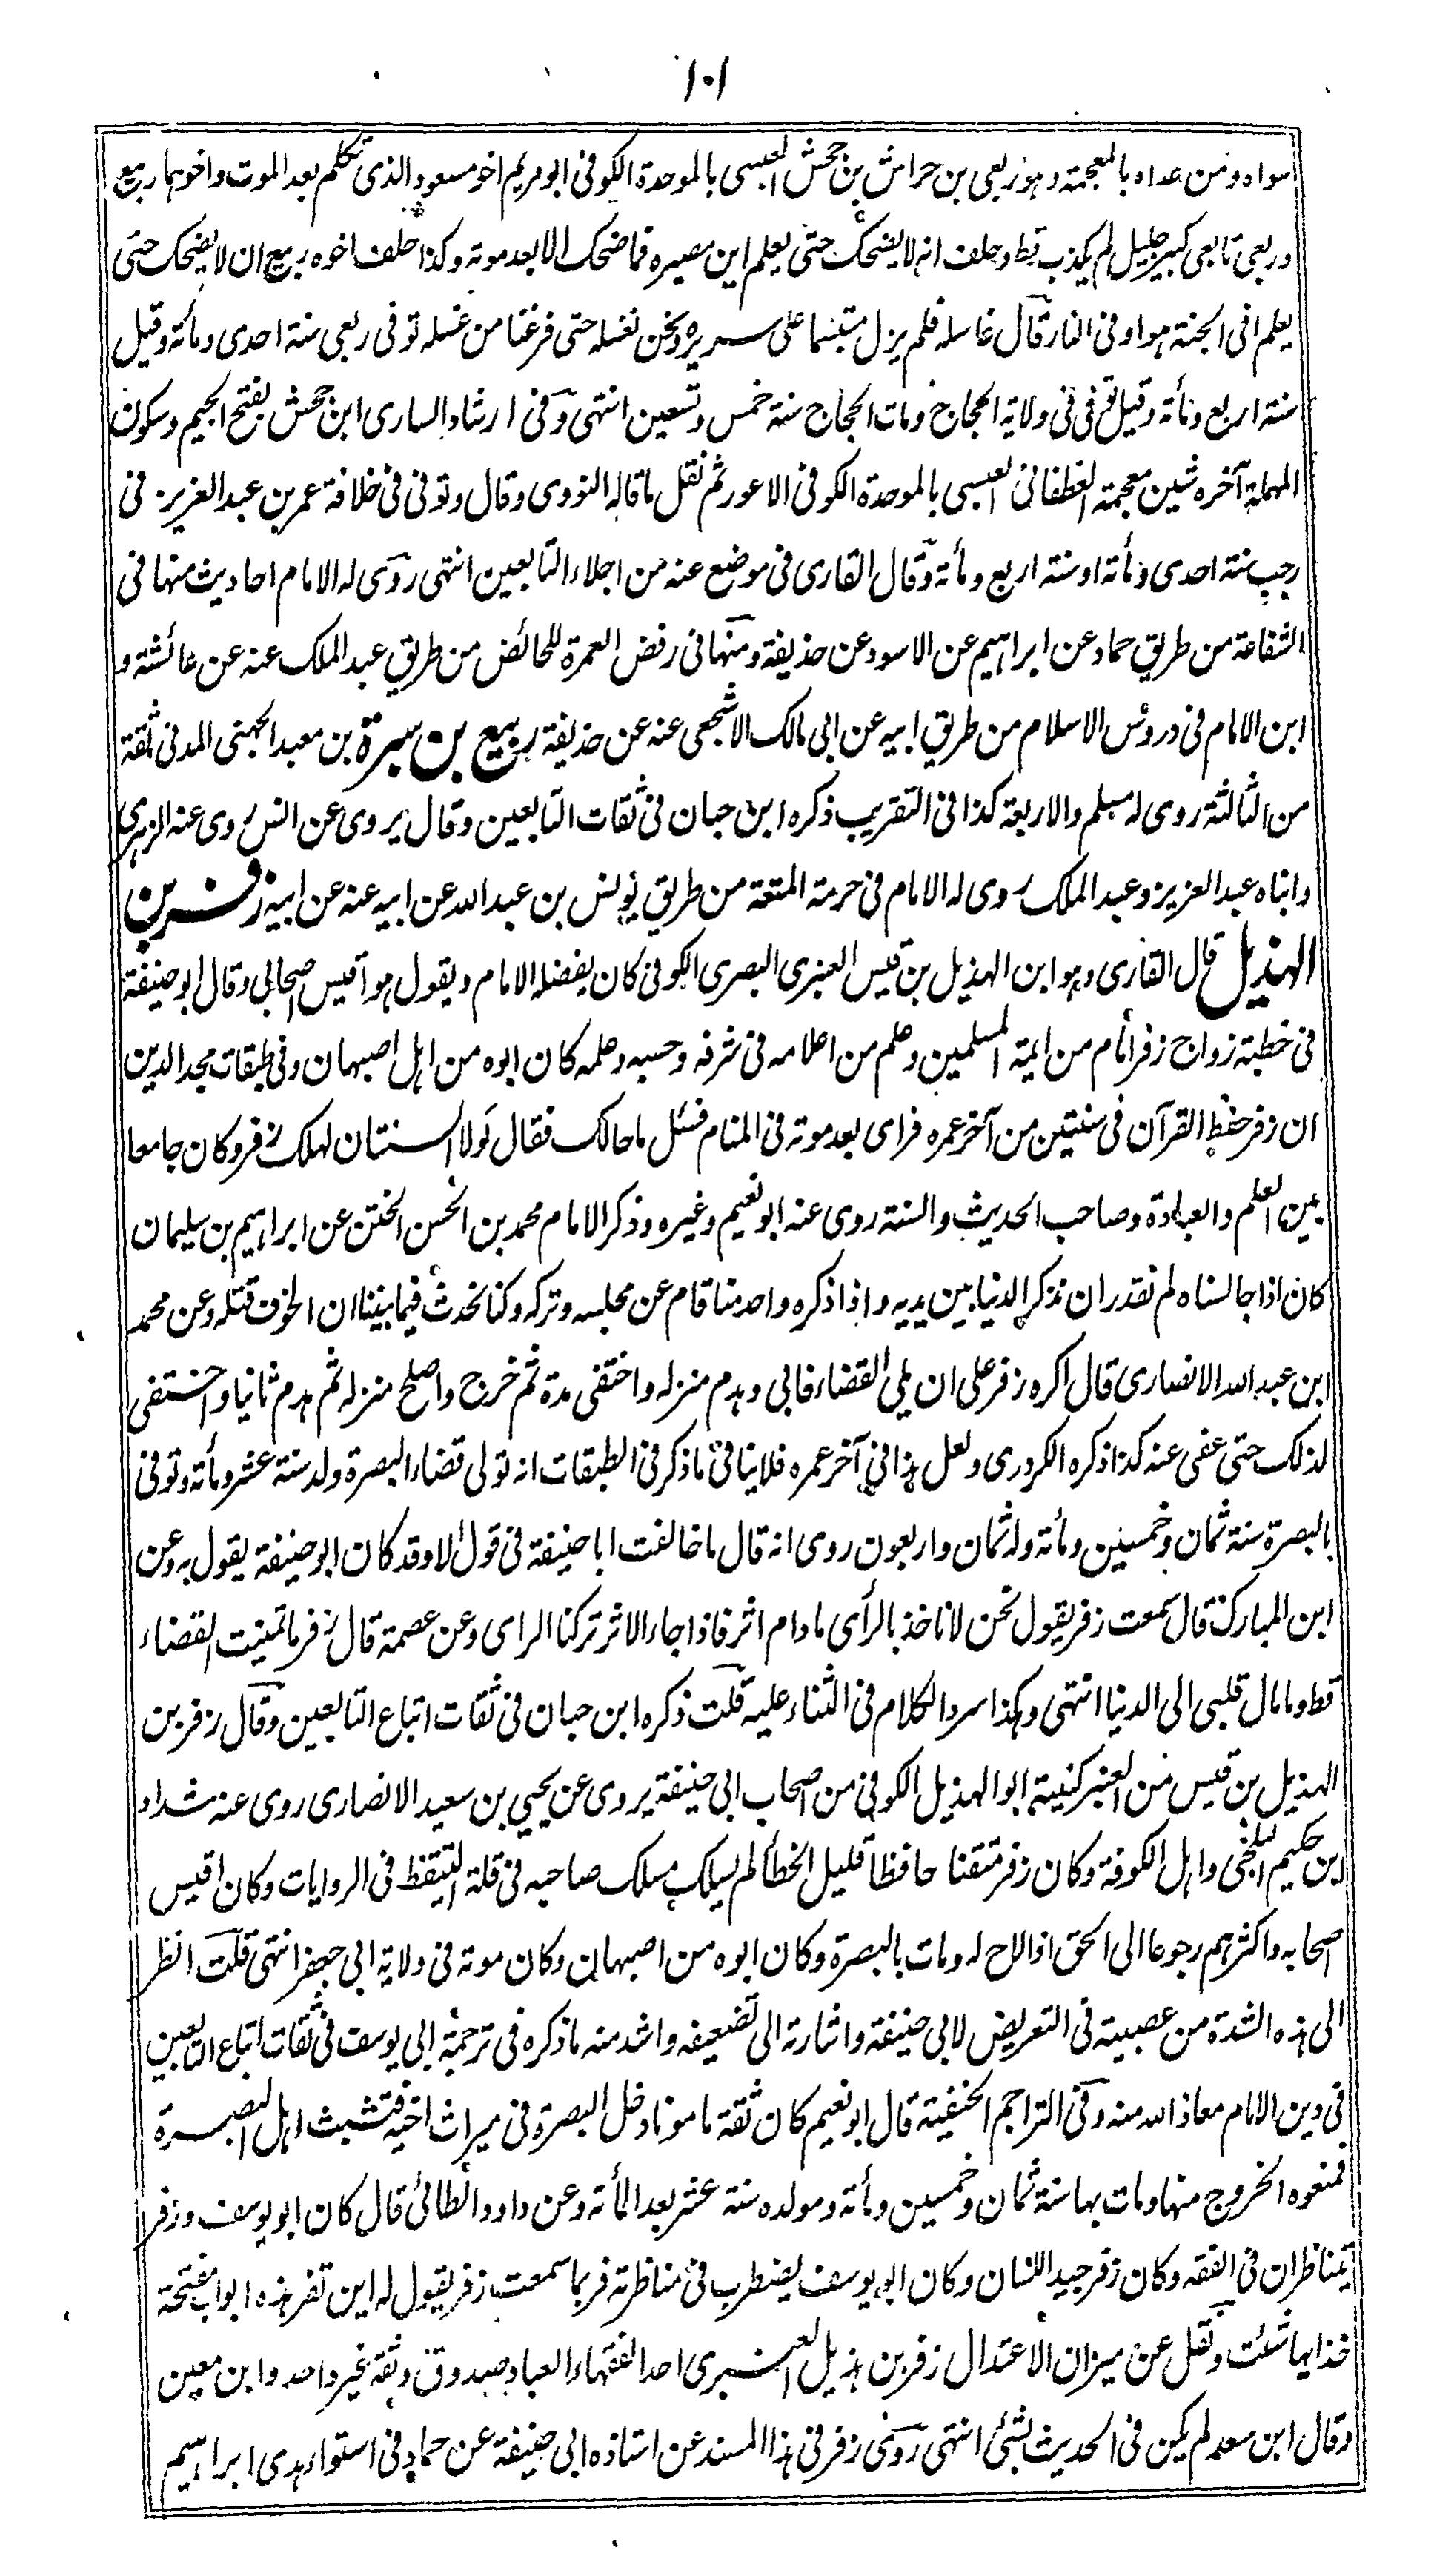 ١٠١
سواه ومن عداه بالمعجمة وهو ربعى بن حراش بن جحش العبسى بالموحدة الكوفى ابو مريم اخو مسعود الذى تكلم بعد الموت واخوهما ربيع
وربعى تابعى كبير جليل لم يكذب قط وحلف انه لا يضحك حتى يعلم اين مصيره فما ضحك الا بعد موته وكذا حلف اخوه ربيع ان لا يضحك حتى
يعلم افى الجنة هو او فى النار قال غاسله فلم يزل متبسما على سريره ونحن نغسله حتى فرغنا من غسله توفى ربعى سنة احدى ومأئة وقيل
سنة اربع ومأئة وقيل توفى فى ولاية الحجاج ومات الحجاج سنة خمس وتسعين انتهى وفى ارشاد السارى ابن جحش بفتح الجيم وسكون
المهملة آخره شين معجمة الغطفانى العبسى بالموحدة الكوفى الاعور ثم نقل ما قاله النووى وقال وتوفى فى خلافة عمر بن عبد العزيز فى
رجب سنة احدى ومأئة او سنة اربع ومأئة وقال القارى فى موضع عنه من اجلاء التابعين انتهى روى له الامام احاديث منها فى
الشفاعة من طريق حماد عن ابراهيم عن الاسود عن حذيفة ومنها فى رفض العمرة للحائض من طريق عبد الملك عنه عن عائشة و
ابن الامام فى دروس الاسلام من طريق ابيه عن ابى مالك الاشجعى عنه عن حذيفة ربيع بن سبرة بن معبد الجهنى المدنى ثقة
من الثالثة روى له مسلم والاربعة كذا فى التقريب ذكره ابن حبان فى ثقات التابعين وقال يروى عن انس روى عنه الزهرى
وابناه عبد العزيز وعبد الملك روى له الامام فى حرمة المتعة من طريق يونس بن عبد الله عن ابيه عنه عن ابيه زفر بن
الهذيل قال القارى وهو ابن الهذيل بن قيس العنبرى البصرى الكوفى كان يفضله الامام ويقول هو اقيس اصحابى وقال ابو حنيفة
فى خطبة زواج زفر امام من ايمة المسلمين وعلم من اعلامه فى شرفه وحسبه وعلمه كان ابوه من اهل اصبهان وفى طبقات مجد الدين
ان زفر حفظ القرآن فى سنتين من آخر عمره فراى بعد موته فى المنام فسئل ما حالك فقال لولا السنتان لهلك زفر وكان جامعا
بين العلم والعبادة وصاحب الحديث والسنة روى عنه ابو نعيم وغيره وذكر الامام محمد بن الحسن الختن عن ابراهيم بن سليمان
كان اذا جالسناه لم نقدر ان نذكر الدنيا بين يديه واذا ذكره واحد منا قام عن مجلسه وتركه وكنا نحدث فيما بيننا ان الخوف قتله وعن محمد
ابن عبد الله الانصارى قال اكره زفر على ان يلى القضاء فابى وهدم منزله واختفى مدة ثم خرج واصلح منزله ثم هدم ثانيا واختفى
لذلك حتى عفى عنه كذا ذكره الكردرى ولعل هذا فى آخر عمره فلا ينافى ما ذكر فى الطبقات انه تولى قضاء البصرة ولد سنة عشر ومأئة وتوفى
بالبصرة سنة ثمان وخمسين ومأئة وله ثمان واربعون روى انه قال ما خالفت ابا حنيفة فى قول الا وقد كان ابو حنيفة يقول به وعن
ابن المبارك قال سمعت زفر يقول نحن لا ناخذ بالرأى ما دام اثر فاذا جاء الاثر تركنا الراى وعن عصمة قال زفر ما تمنيت القضاء
قط وما مال قلبى الى الدنيا انتهى وهكذا سرد الكلام فى الثناء عليه قلت ذكره ابن حبان فى ثقات اتباع التابعين وقال زفر بن
الهذيل بن قيس من العنبر كنيته ابو الهذيل الكوفى من اصحاب ابى حنيفة يروى عن يحيى بن سعيد الانصارى روى عنه شداد
ابن حكيم البلخى واهل الكوفة وكان زفر متقنا حافظا قليل الخطأ لم يسلك مسلك صاحبه فى قلة التيقظ فى الروايات وكان اقيس
اصحابه واكثرهم رجوعا الى الحق اذا لاح له ومات بالبصرة وكان ابوه من اصبهان وكان موته فى ولاية ابى جعفر انتهى قلت انظر
الى هذه الشدة من عصبيته فى التعريض لابى حنيفة واشارته الى تضعيفه واشد منه ما ذكره فى ترجمة ابى يوسف فى ثقات اتباع التابعين
فى دين الامام معاذ الله منه وفى التراجم الحنفية قال ابو نعيم كان ثقة مامونا دخل البصرة فى ميراث اخيه فتشبث اهل البصرة
فمنعوه الخروج منها ومات بها سنة ثمان وخمسين ومأئة ومولده سنة عشر بعد المأئة وعن داود الطائى قال كان ابو يوسف وزفر
يتناظران فى الفقه وكان زفر جيد اللسان وكان ابو يوسف يضطرب فى مناظرته فربما سمعت زفر يقول له اين تفر هذه ابواب مفتحة
خذ ايها شئت ونقل عن ميزان الاعتدال زفر بن هذيل العنبرى احد الفقهاء العباد صدوق وثقه غير واحد وابن معين
وقال ابن سعد لم يكن فى الحديث بشئ انتهى روى زفر فى هذا المسند عن استاذه ابى حنيفة عن حماد فى استواء هدى ابراهيم